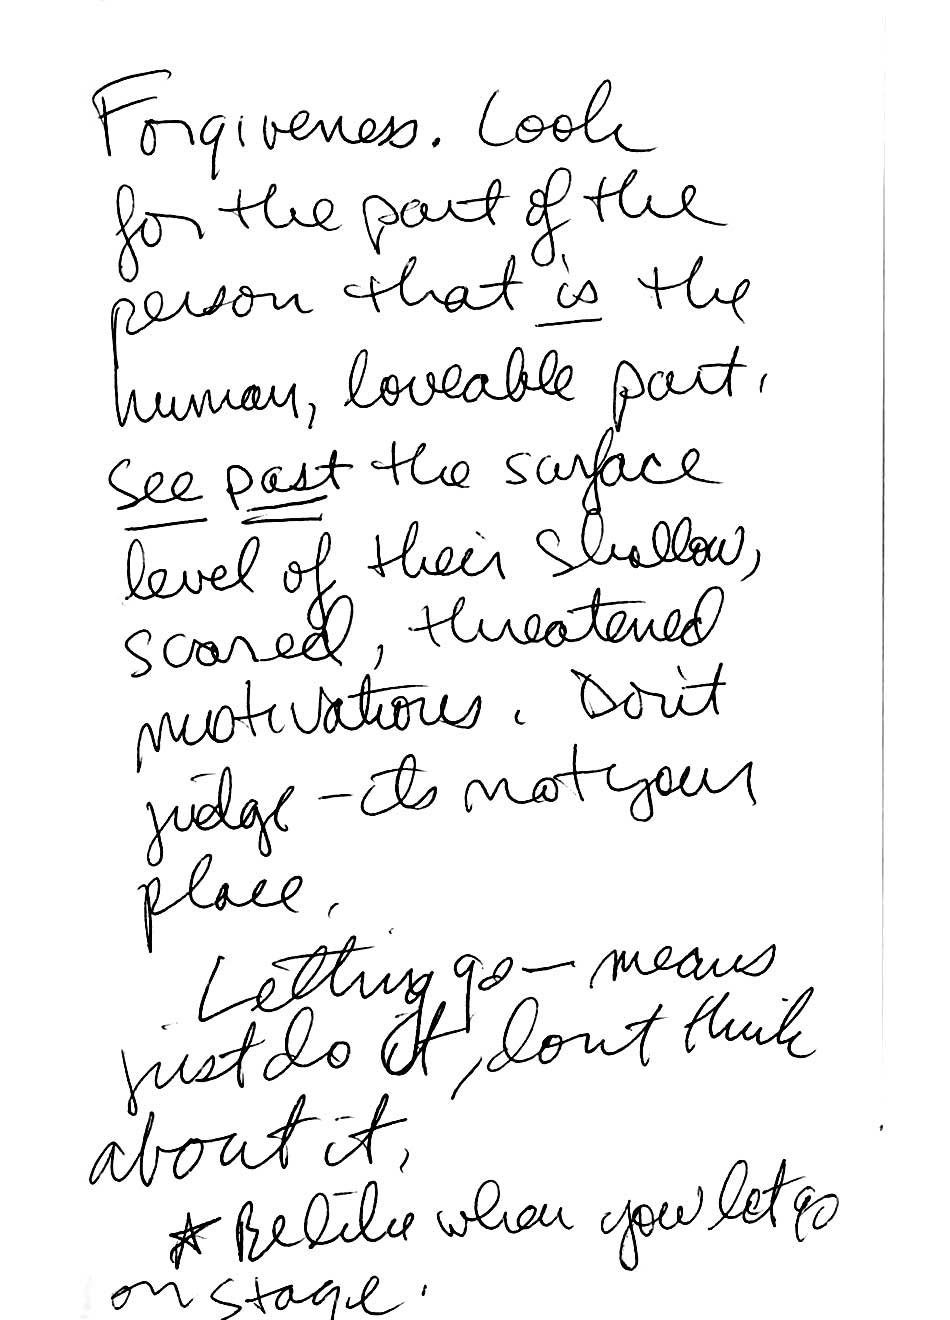 Forgiveness. Look
for the part of the
person that is the
human, loveable part.
See past the surface
level of their shallow,
scared, threatened
motivations. Don't
judge - its not your
place.
Letting go - means
just do it, dont think
about it,
* Be like when you let go
on stage.